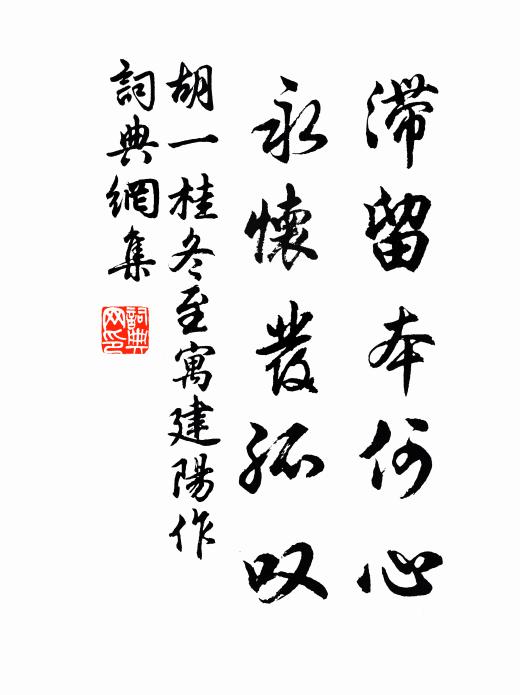 滯留本何心
永懷發孤叹
胡一桂冬至寓建陽作
詞典網集
詞典网印